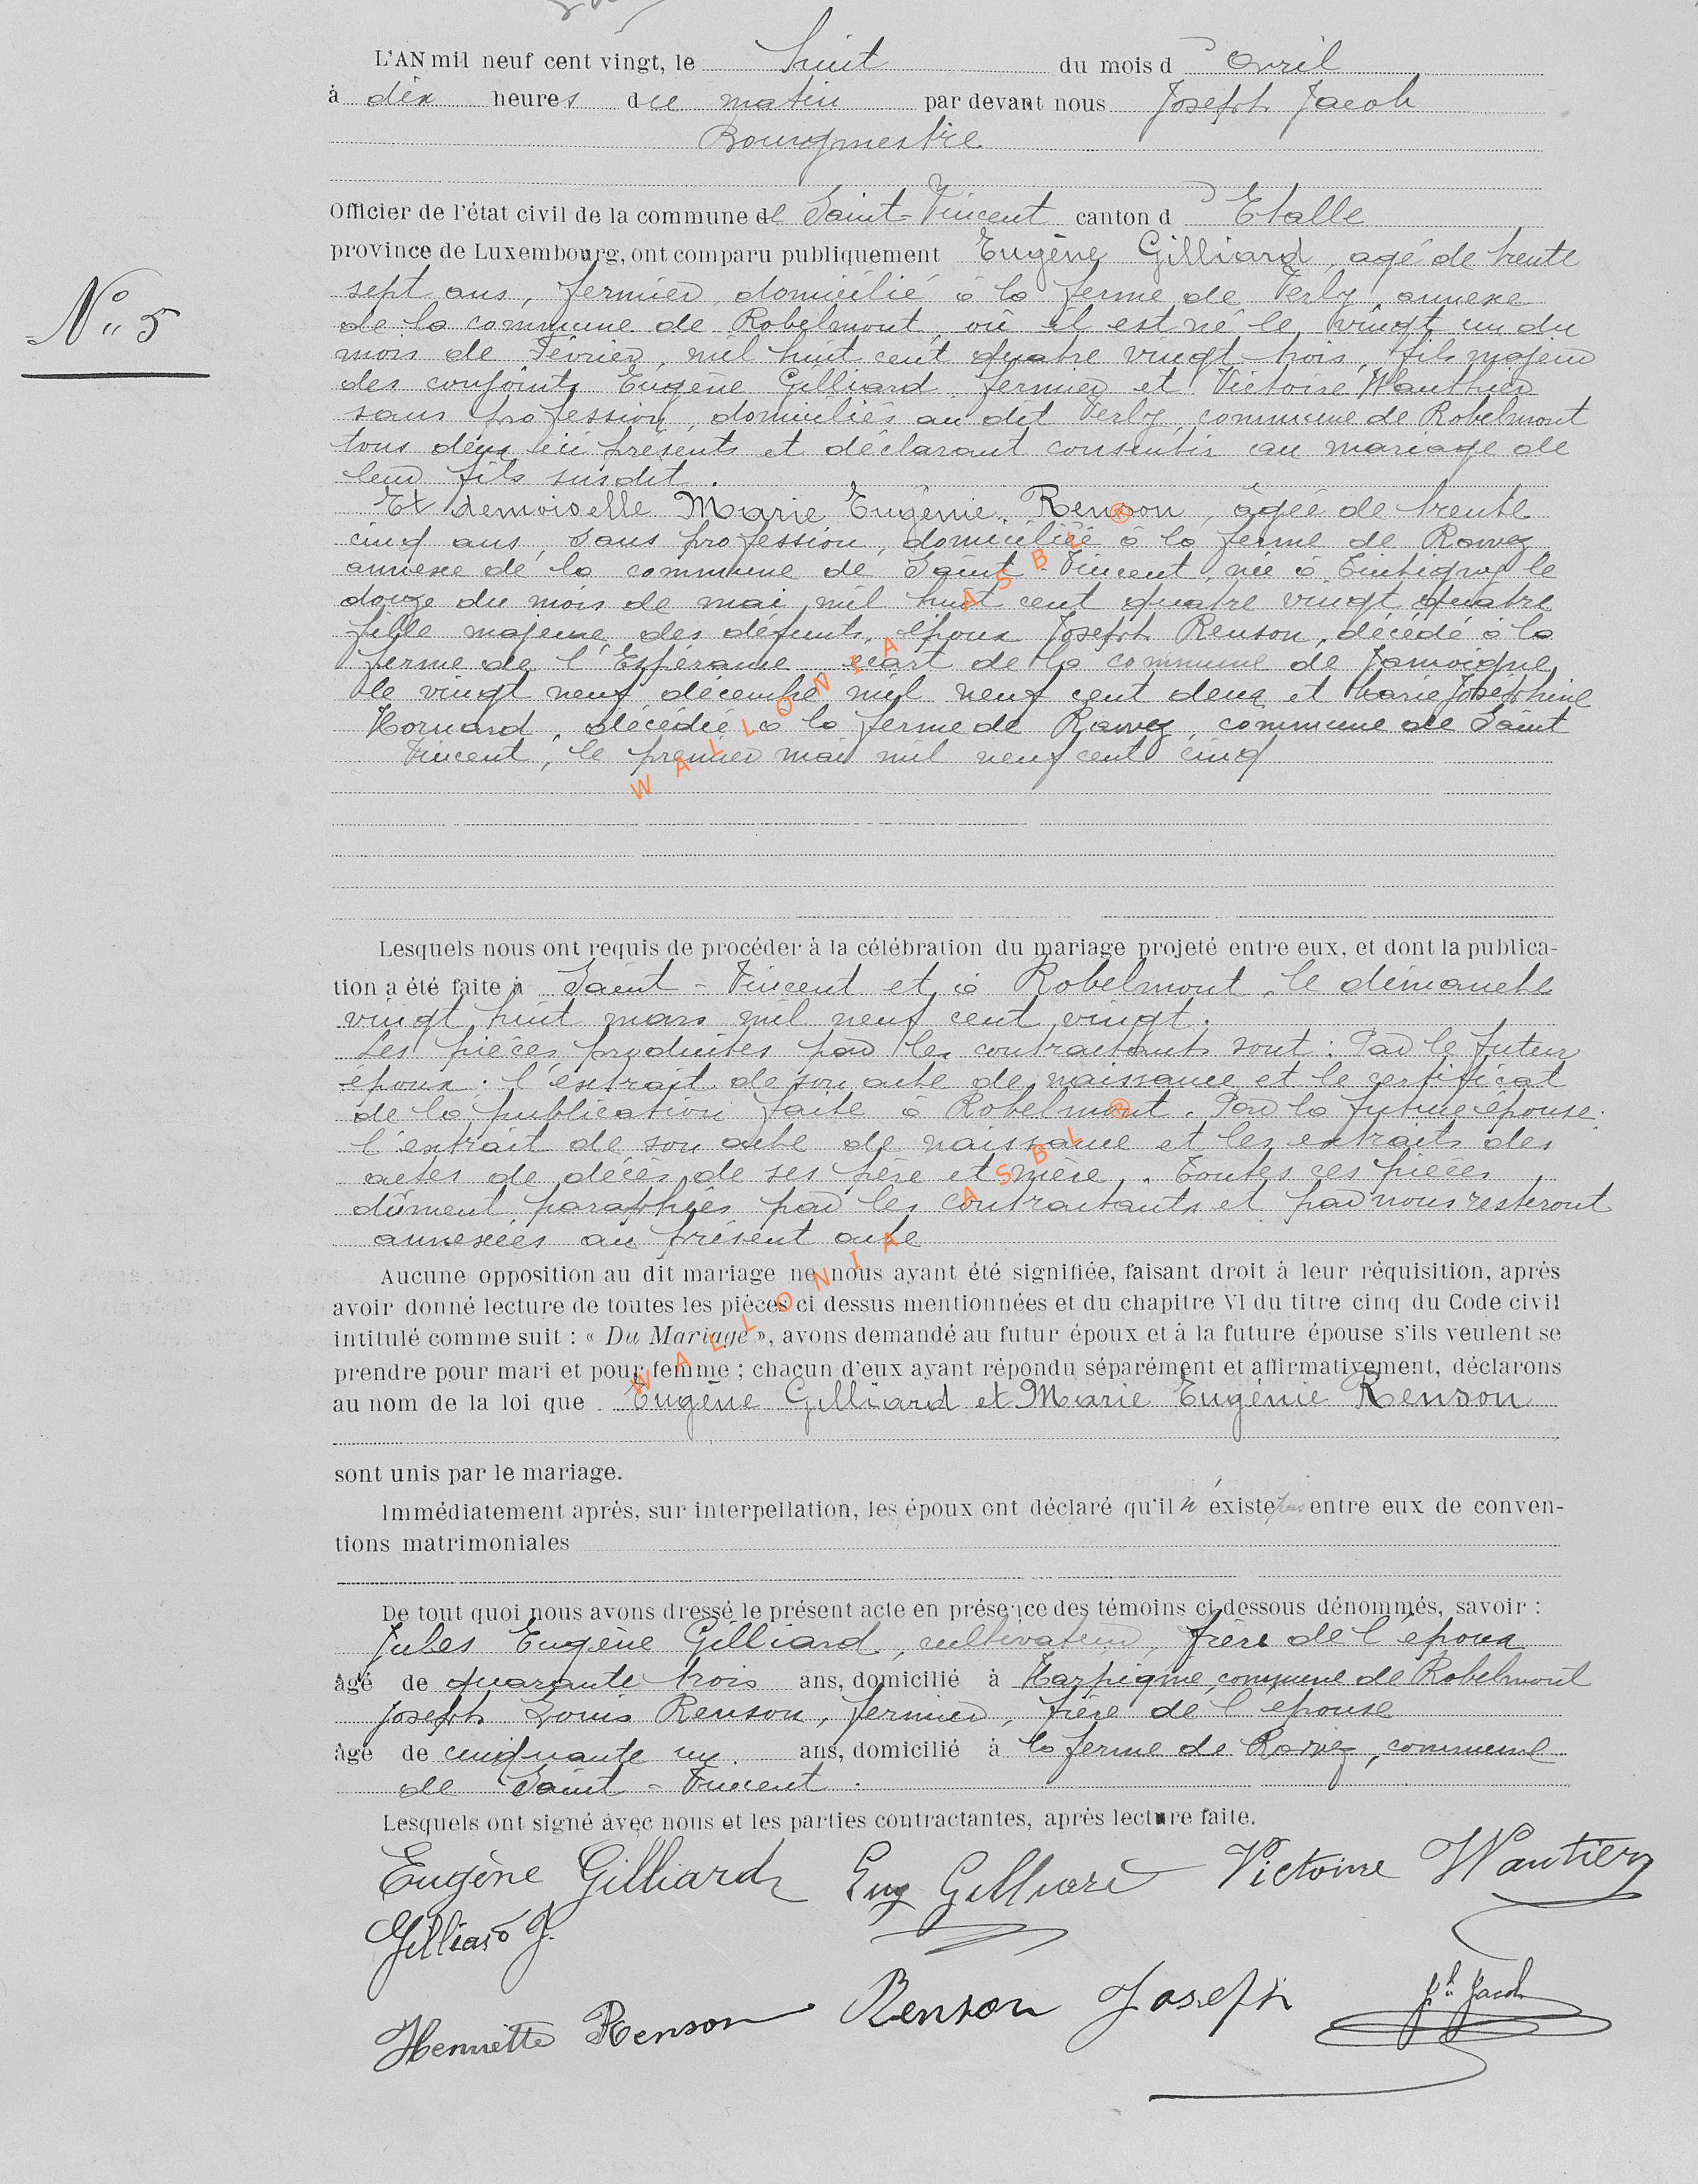 L'AN mil neuf cent vingt, le huit du mois d' Avril
à dix heures du matin par devant nous Joseph Jacob
Bourgmestre
Officier de l'état civil de la commune de Saint-Vincent canton d' Etalle
province de Luxembourg, ont comparu publiquement Eugène Gilliard, agé de trente
sept ans, fermier, domicilié à la ferme de Verly, annexe
de la commune de Robelmont, où il est né le vingt un du
mois de Février, mil huit cent quatre vingt trois, fils majeur
des conjoints Eugène Gilliard, fermier et Victoire Wauthier
sans profession, domiciliés au dit Verly, commune de Robelmont
tous deux ici présents et déclarant consentir au mariage de
leur fils susdit.
Et demoiselle Marie Eugénie Renson, âgée de trente
cinq ans, sans profession, domiciliée à la ferme de Rawez
annexe de la commune de Saint-Vincent, née à Tintigny le
douze du mois de mai mil huit cent quatre vingt quatre
fille majeure des défunts époux Joseph Renson, décédé à la
ferme de l'Espérance écart de la commune de Jamoigne,
le vingt neuf décembre mil neuf cent deux et Marie Joséphine
Hornard, décédée à la ferme de Rawez, commune de Saint
Vincent, le premier mai mil neuf cent cinq
Lesquels nous ont requis de procéder à la célébration du mariage projeté entre eux, et dont la publica-
tion a été faite à Saint-Vincent et à Robelmont, le dimanche
vingt huit mars mil neuf cent vingt.
Les pièces produites par les contractants sont : Par le futur
époux : l'extrait de son acte de naissance et le certificat
de la publication faite à Robelmont. Par la future épouse :
l'extrait de son acte de naissance et les extraits des
actes de décès de ses père et mère. Toutes ces pièces
dûment paraphées par les contractants et par nous resteront
annexées au présent acte
Aucune opposition au dit mariage ne nous ayant été signifiée, faisant droit à leur réquisition, après
avoir donné lecture de toutes les pièces ci dessus mentionnées et du chapitre VI du titre cinq du Code civil
intitulé comme suit : « Du Mariage », avons demandé au futur époux et à la future épouse s'ils veulent se
prendre pour mari et pour femme ; chacun d'eux ayant répondu séparément et affirmativement, déclarons
au nom de la loi que Eugène Gilliard et Marie Eugénie Renson
sont unis par le mariage.
Immédiatement après, sur interpellation, les époux ont déclaré qu'il n'existe pas entre eux de conven-
tions matrimoniales
De tout quoi nous avons dressé le présent acte en présence des témoins ci-dessous dénommés, savoir :
Jules Eugène Gilliard, cultivateur, frère de l'époux
âgé de quarante trois ans, domicilié à Harpigne, commune de Robelmont
Joseph Louis Renson, fermier, frère de l'épouse
âgé de cinquante un ans, domicilié à la ferme de Rawez, commune
de Saint-Vincent.
Lesquels ont signé avec nous et les parties contractantes, après lecture faite.
Eugène Gilliard Eug Gilliard Victoire Wautier
Gilliard J.
Henriette Renson Renson Joseph Jh Jacob
N° 5
WALLONIA ASBL ®
WALLONIA ASBL ®